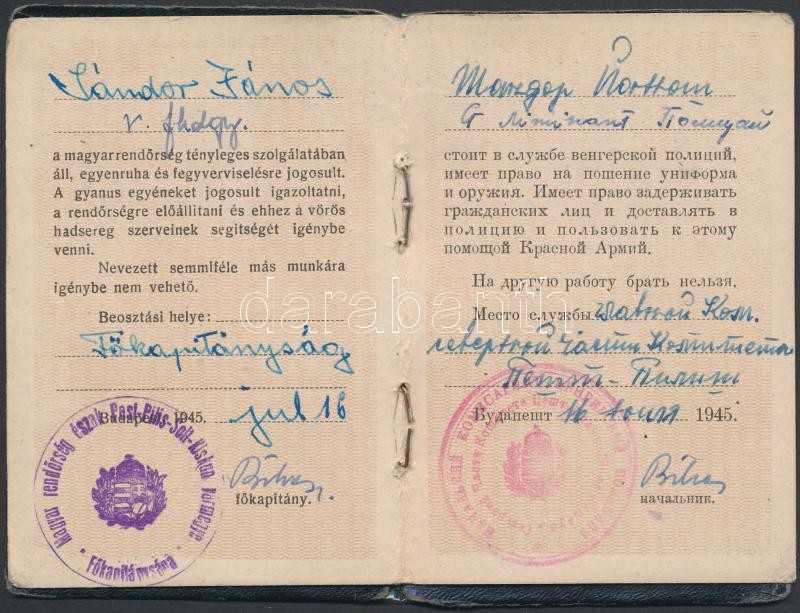 Sándor János
r. fhdgy.
a magyar rendőrség tényleges szolgálatában
áll, egyenruha és fegyverviselésre jogosult.
A gyanus egyéneket jogosult igazoltatni,
a rendőrségre előállitani és ehhez a vörös
hadsereg szerveinek segitségét igénybe
venni.
Nevezett semmiféle más munkára
igénybe nem vehető.
Beosztási helye:
Főkapitányság
Budapest, 1945. jul 16
főkapitány.
Magyar rendőrség Észak Pest-Pilis-Solt-Kiskun vármegye
Főkapitánysága
Шандор
стоит в службе венгерской полиций,
имеет право на пошение униформа
и оружия. Имеет право задерживать
гражданских лиц и доставлять в
полицию и пользовать к этому
помощой Красной Армий.
На другую работу брать нельзя.
Место службы главной Ком.
северной части Комитета
Пешт-Пилиш
Будапешт 16 1945.
начальник.
darabanth